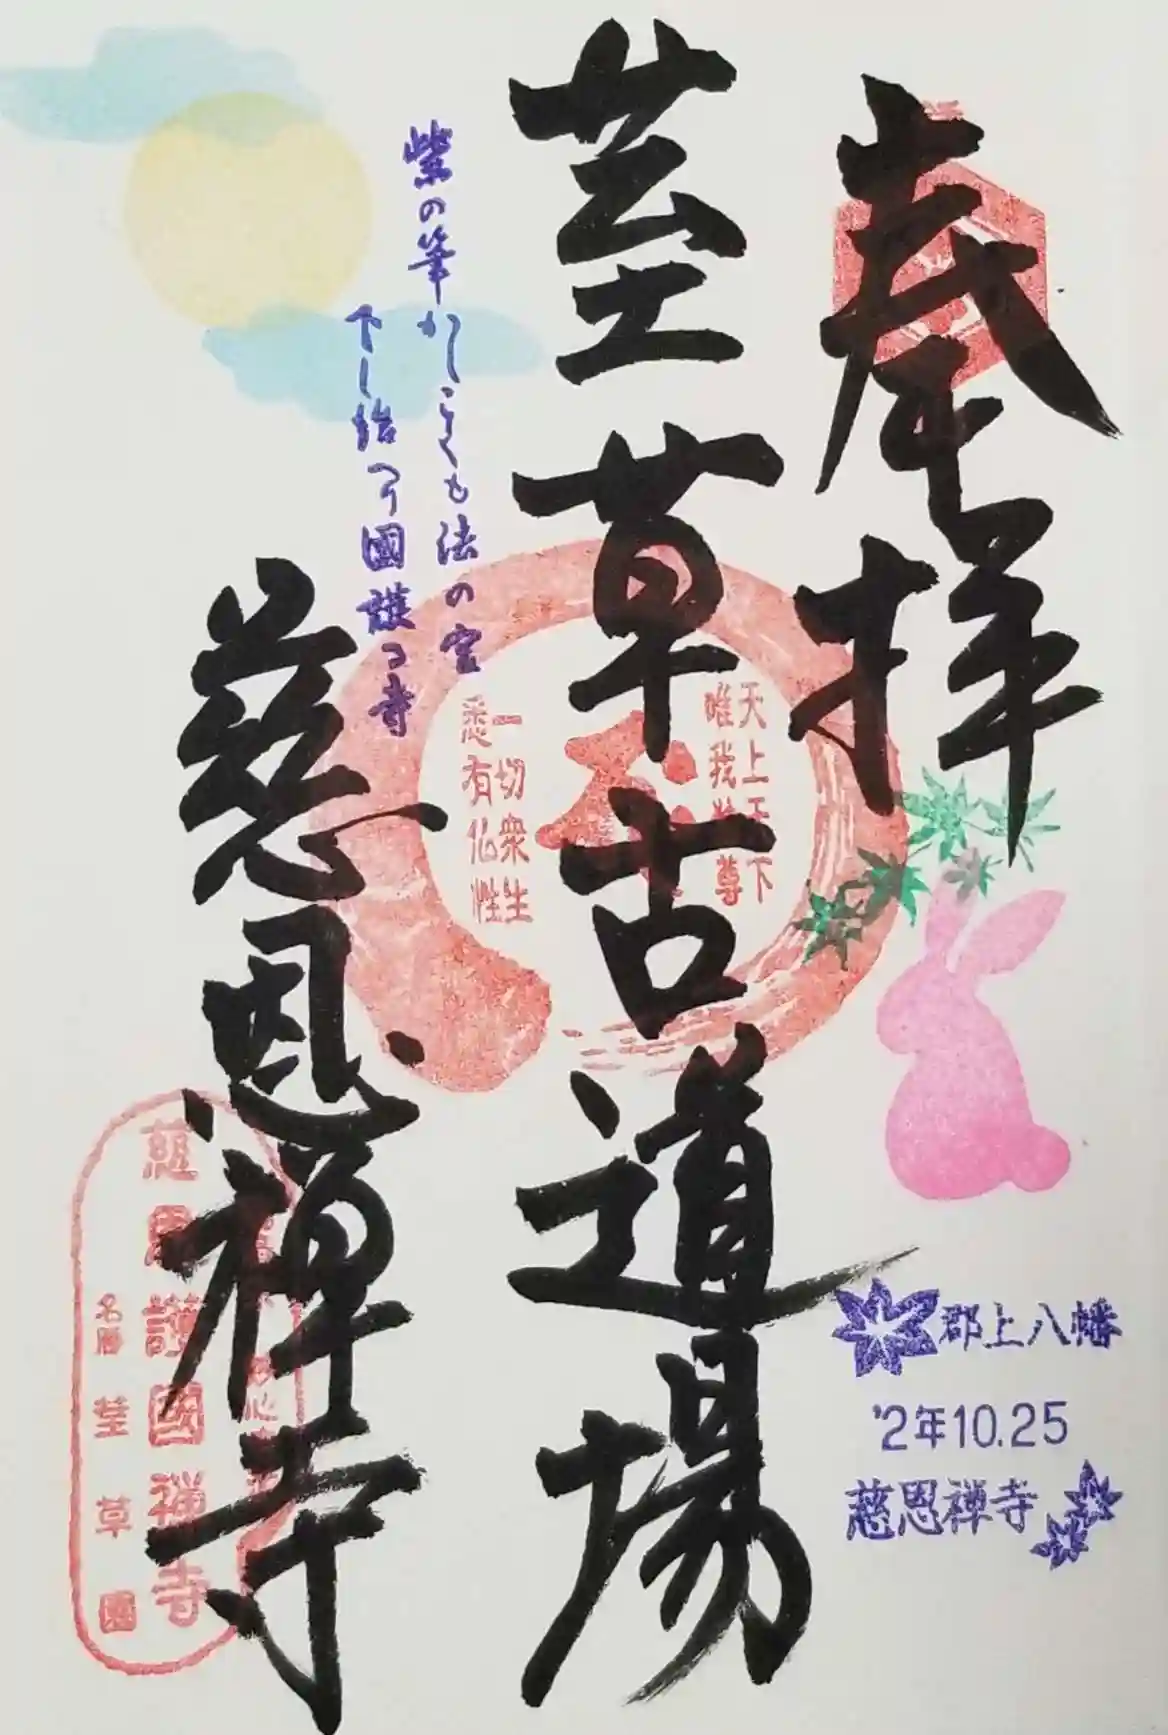 奉拝
荎草古道場
紫の筆かしこくも法の宮
下し給へり國護る寺
慈恩禅寺
天上天下
唯我独尊
一切衆生
悉有仏性
慈恩護國禅寺
名勝 荎草園
郡上八幡
'2年10.25
慈恩禅寺